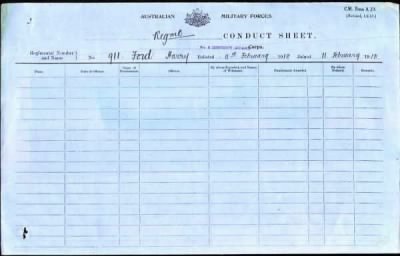 C.M. Form A.23.
AUSTRALIAN MILITARY FORCES.
Regtl CONDUCT SHEET.
Corps.
Regimental Number and Name } No. 911 Ford Harry Enlisted 8th February 1918 Joined 11 February 1918
Place. Date of Offence. Cases of Drunkenness. Offence. By whom Reported, and Names of Witnesses. Punishment Awarded. By whom Ordered. Remarks.